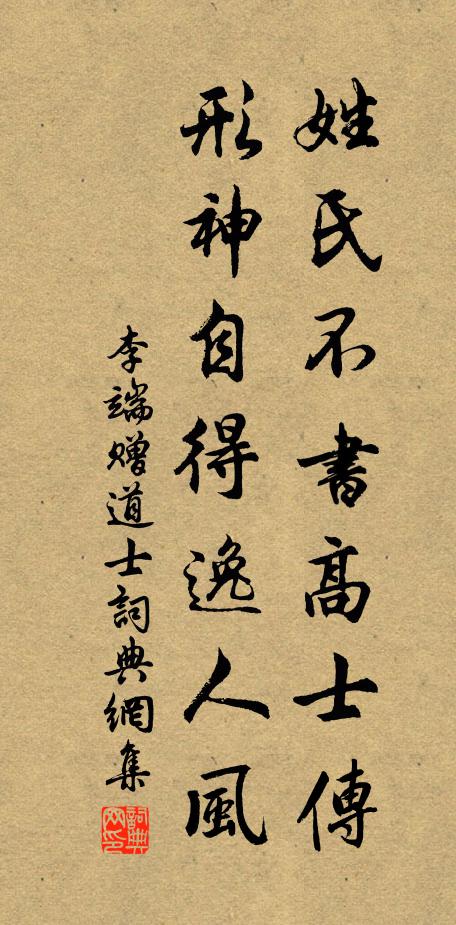 姓氏不書高士傳
形神自得逸人風
李端贈道士詞典網集
詞典网印